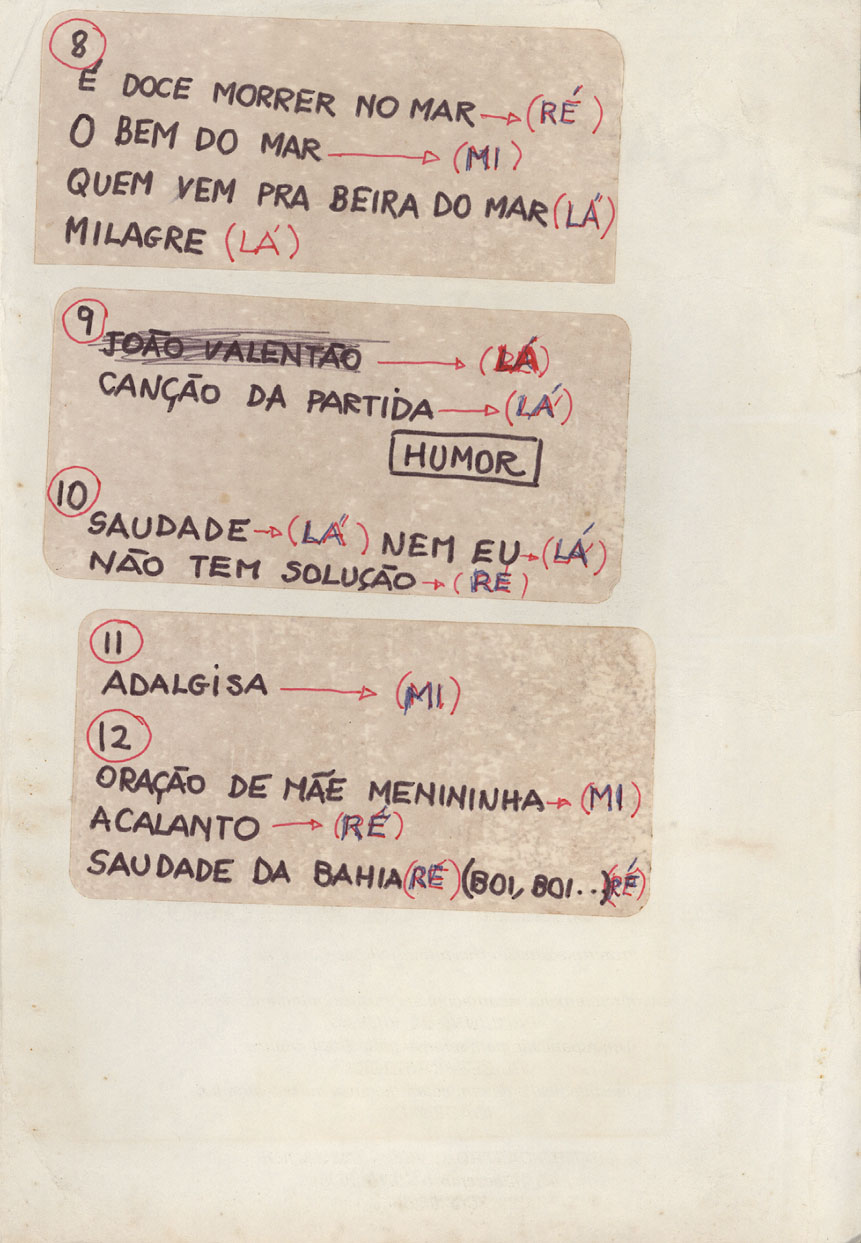 8
É DOCE MORRER NO MAR → (RÉ)
O BEM DO MAR → (MI)
QUEM VEM PRA BEIRA DO MAR (LÁ)
MILAGRE (LÁ)
9
JOÃO VALENTÃO → (LÁ)
CANÇÃO DA PARTIDA → (LÁ)
HUMOR
10
SAUDADE → (LÁ) NEM EU → (LÁ)
NÃO TEM SOLUÇÃO → (RÉ)
11
ADALGISA → (MI)
12
ORAÇÃO DE MÃE MENININHA → (MI)
ACALANTO → (RÉ)
SAUDADE DA BAHIA (RÉ) (BOI, BOI..) (RÉ)